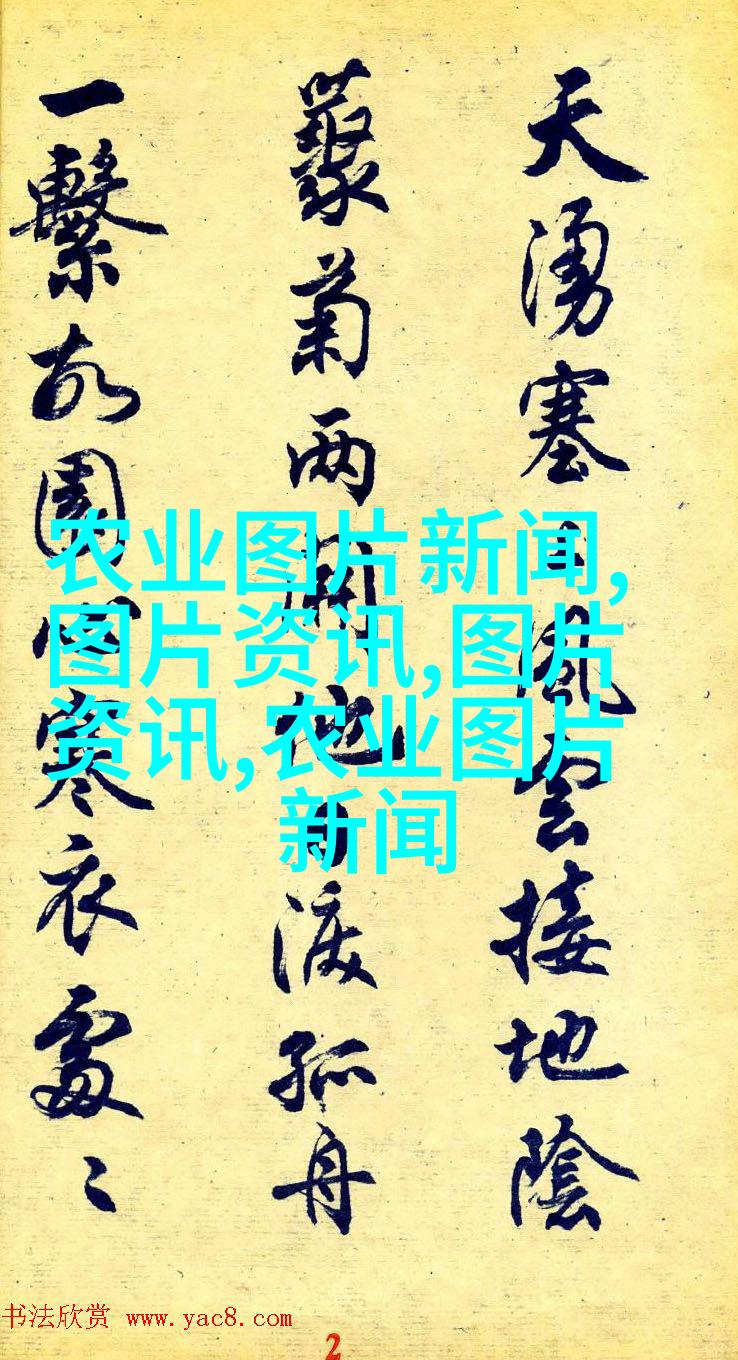 天湧塞上風雲接地陰
藂菊两開他日淚孤舟
一繫故園心寒衣處〻
农业图片新闻,
图片资讯,图片
资讯,农业图片
新闻
书法欣赏 www.yac8.com
2